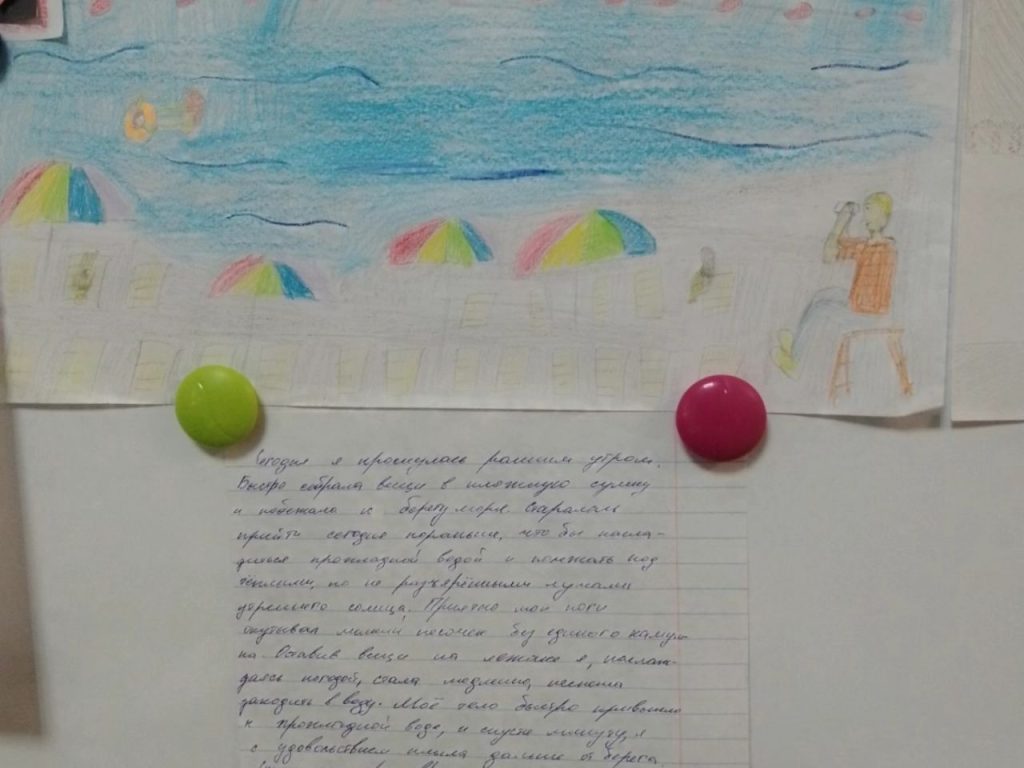 Сегодня я проснулась ранним утром.
Быстро собрала вещи в пляжную сумку
и побежала к берегу моря. Старалась
прийти сегодня пораньше, что бы насла-
диться прохладной водой и полежать под
тёплыми, но не разъярёнными лучами
утреннего солнца. Приятно мои ноги
окутывал мелкий песочек без единого камуш-
ка. Оставив вещи на лежаке я, наслаж-
даясь погодой, стала медленно,
заходить в воду. Моё тело быстро привыкло
к прохладной воде, и спустя минуту, я
с удовольствием плыла дальше от берега.